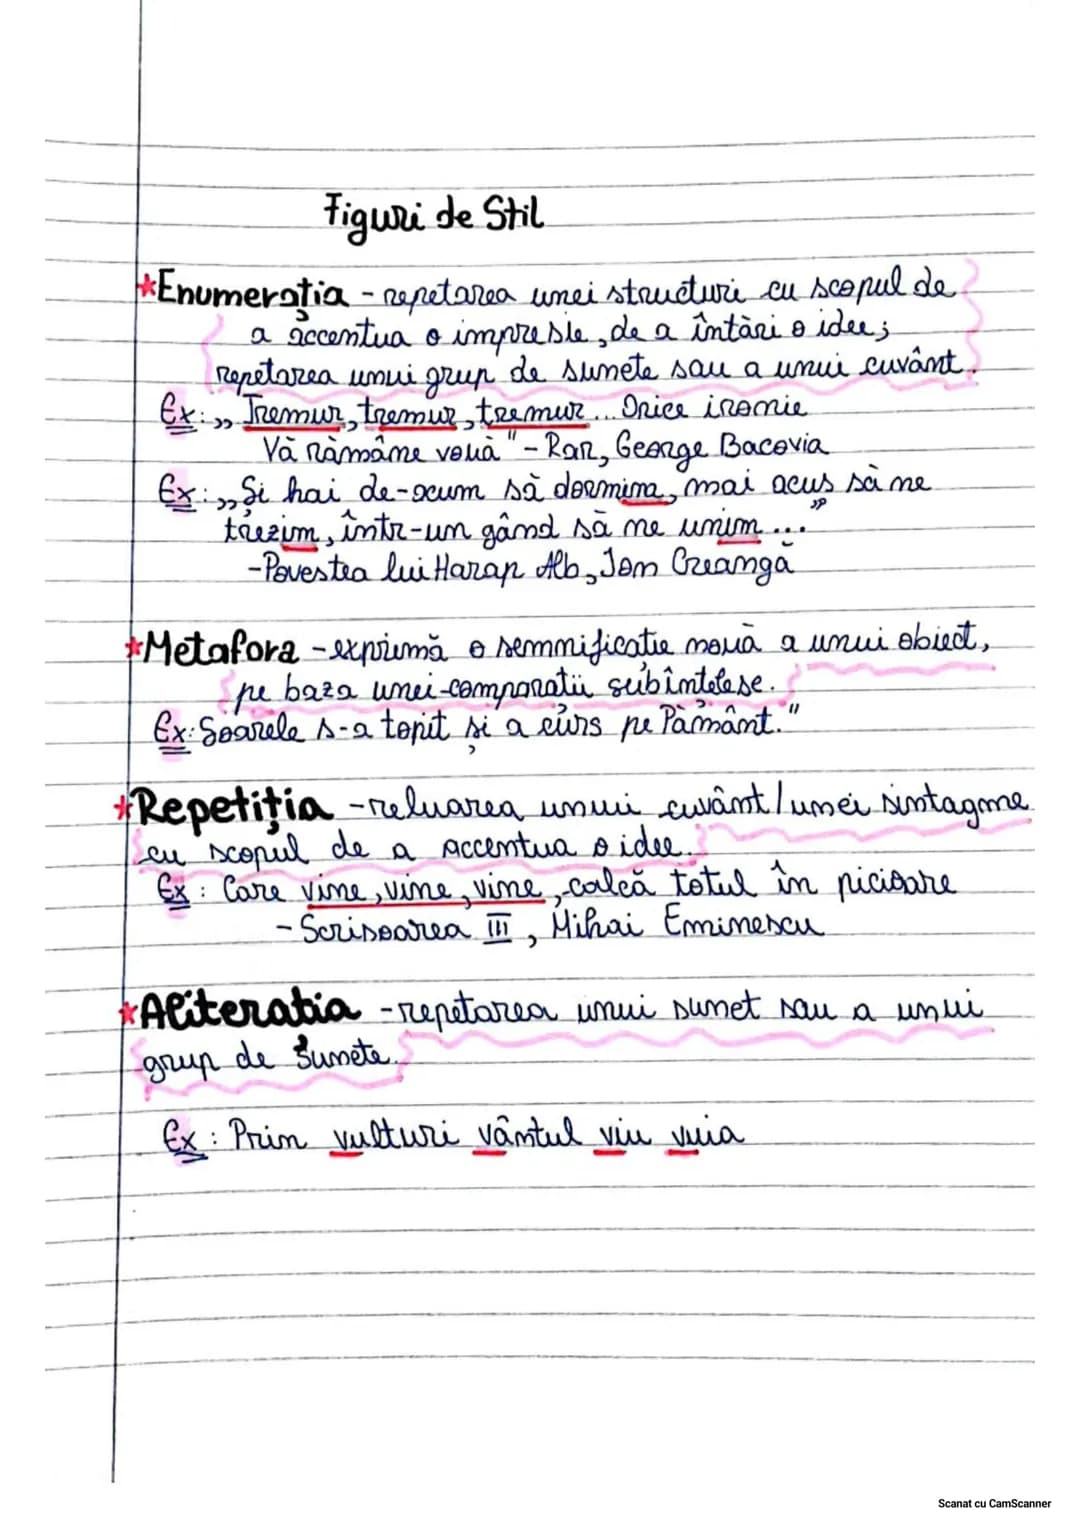 Figuri de Stil
*Enumerația - repetarea unei structuri cu scopul de
a accentua o impresie, de a întări o idee;
repetarea unui grup de sunete sau a unui cuvânt.
Ex: „Tremur, tremur, tremur... Orice ironie
Vă rămâne vouă" - Rar, George Bacovia
Ex: „Si hai de-acum să dormim, mai acus să ne
trezim, într-un gând să ne unim..."
-Povestea lui Harap Alb, Ion Creangă
*Metafora - exprimă o semnificatie nouă a unui obiect,
pe baza unei comparatii subîntelese.
Ex: Soarele s-a topit și a curs pe Pământ."
*Repetiția - reluarea unui cuvânt/unei sintagme
cu scopul de a accentua o idee.
Ex: Care vine, vine, vine, calcă totul în picioare
- Scrisoarea III, Mihai Eminescu
*Aliteratia - repetarea unui sunet sau a unui
grup de sunete.
Ex: Prin vulturi vântul viu vuia
Scanat cu CamScanner